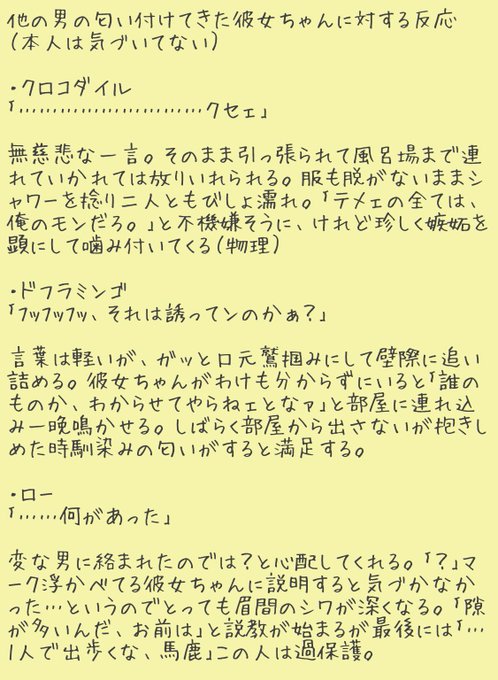 他の男の匂い付けてきた彼女ちゃんに対する反応
(本人は気づいてない)
・クロコダイル
「………………………クセェ」
無慈悲な一言。そのまま引っ張られて風呂場まで連
れていかれては放りいれられる。服も脱がないままシ
ャワーを捻り二人ともびしょ濡れ。「テメェの全ては、
俺のモンだろ。」と不機嫌そうに、けれど珍しく嫉妬を
顕にして噛み付いてくる(物理)
・ドフラミンゴ
「フッフッフッ、それは誘ってンのかぁ?」
言葉は軽いが、ガッと口元鷲掴みにして壁際に追い
詰める。彼女ちゃんがわけも分からずにいると「誰の
ものか、わからせてやらねェとなァ」と部屋に連れ込
み一晩鳴かせる。しばらく部屋から出さないが抱きし
めた時馴染みの匂いがすると満足する。
・ロー
「……何があった」
変な男に絡まれたのでは?と心配してくれる。「?」マ
ーク浮かべてる彼女ちゃんに説明すると気づかなか
った…というのでとっても眉間のシワが深くなる。「隙
が多いんだ、お前は」と説教が始まるが最後には「…
1人で出歩くな、馬鹿」この人は過保護。